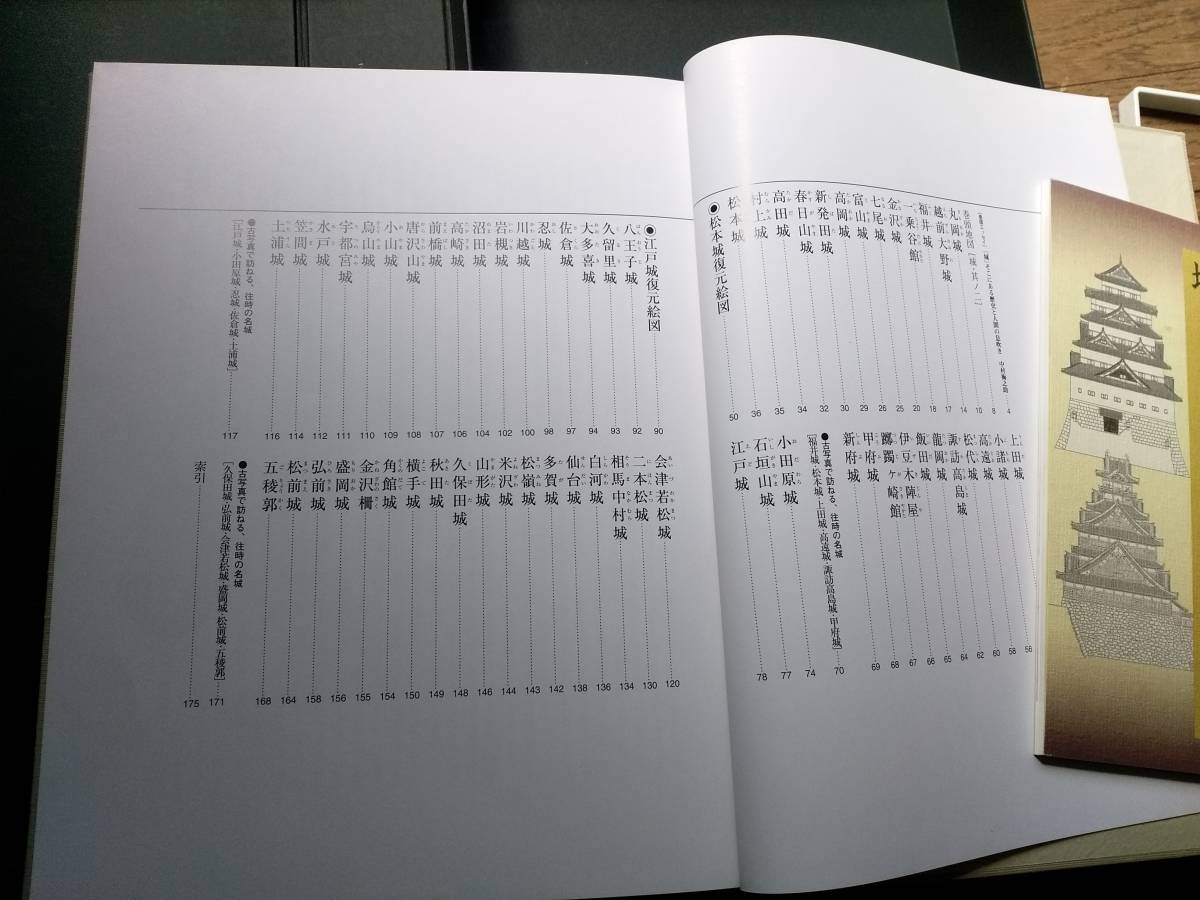 「城」そこにある歴史と人間の息吹き 中村梅之助 4
巻頭地図[城・其ノ二] 8
丸岡城 10
越前大野城 14
福井城 17
一乗谷館 18
金沢城 20
七尾城 25
富山城 26
高岡城 29
新発田城 30
春日山城 32
高田城 34
村上城 35
松本城 36
●松本城復元絵図 50
上田城 56
小諸城 58
高遠城 60
松代城 62
諏訪高島城 64
龍岡城 65
飯田城 66
伊豆木陣屋
躑躅ヶ崎館 67
甲府城 68
新府城 69
●古写真で訪ねる、往時の名城
[福井城・松本城・上田城・高遠城・諏訪高島城・甲府城] 70
小田原城 74
石垣山城 77
江戸城 78
●江戸城復元絵図 90
八王子城 92
久留里城 93
大多喜城 94
佐倉城 97
忍城 98
川越城 100
岩槻城 102
沼田城 104
高崎城 106
前橋城 107
唐沢山城 108
小山城 109
烏山城 110
宇都宮城 111
水戸城 112
笠間城 114
土浦城 116
●古写真で訪ねる、往時の名城
[江戸城・小田原城・忍城・佐倉城・土浦城] 117
会津若松城 120
二本松城 130
相馬中村城 134
白河城 136
仙台城 138
多賀城 142
松嶺城 143
米沢城 144
山形城 146
久保田城 148
秋田城 149
横手城 150
角館城 154
金沢柵 155
盛岡城 156
弘前城 158
松前城 164
五稜郭 168
●古写真で訪ねる、往時の名城
[久保田城・弘前城・会津若松城・盛岡城・松前城・五稜郭] 171
索引 175